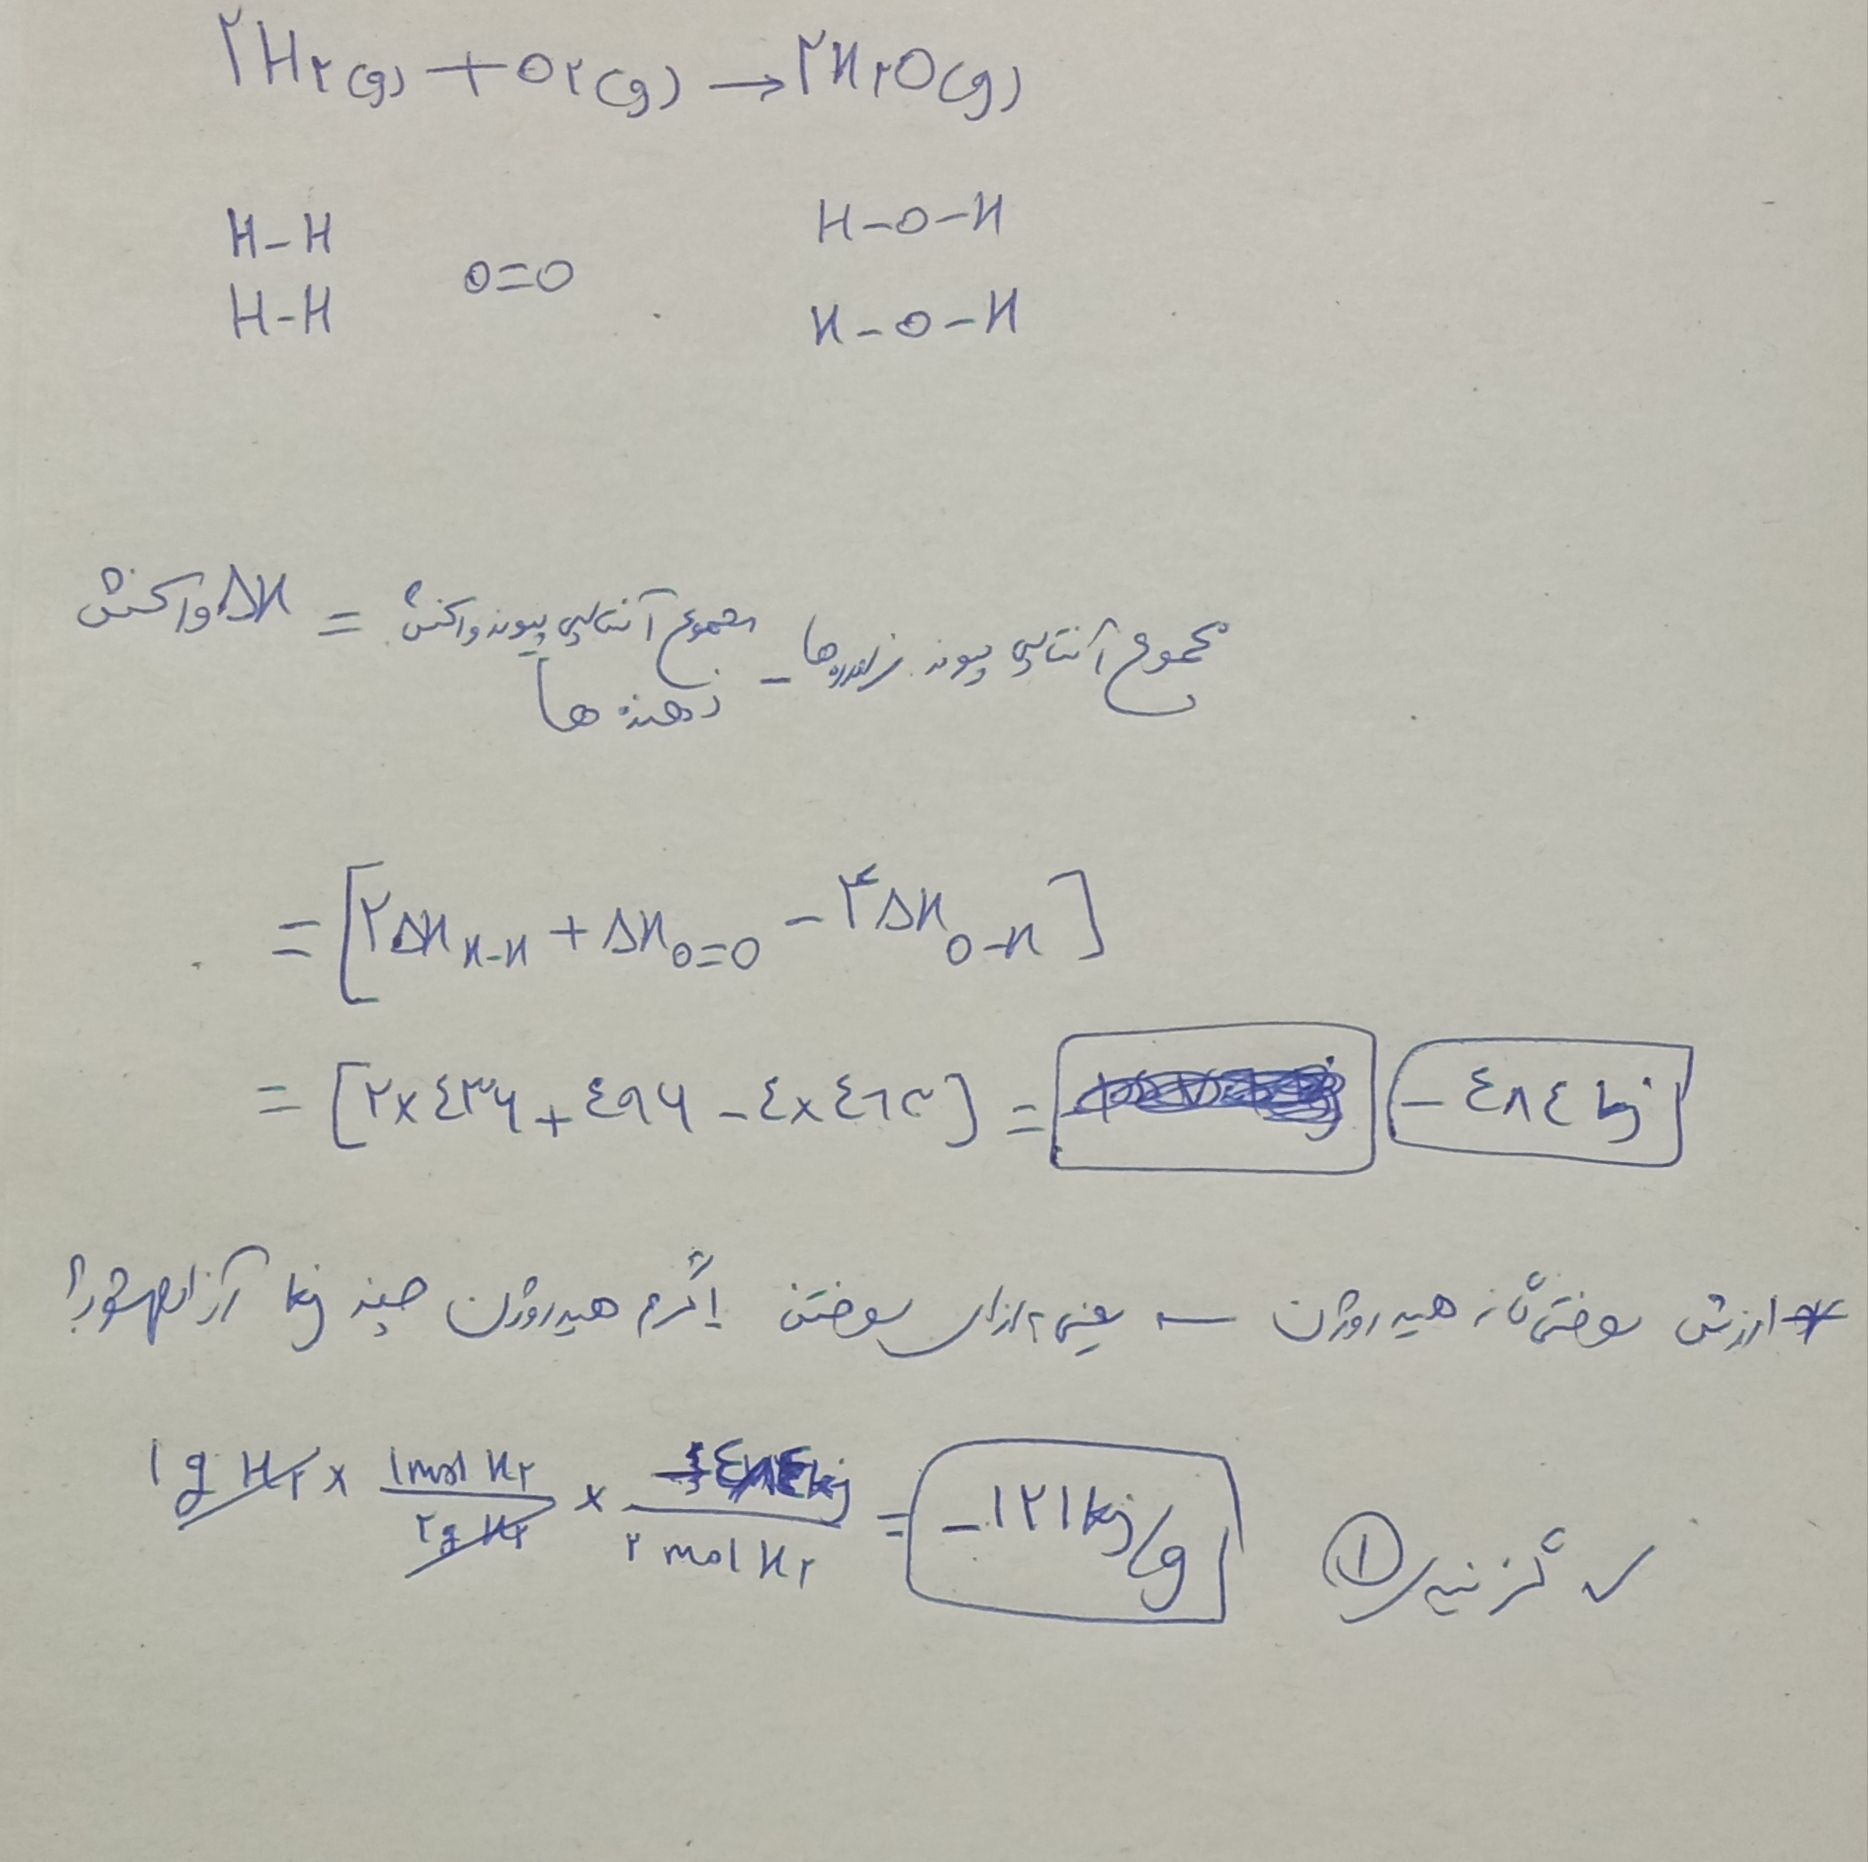 ۲H۲(g) + O۲(g) → ۲H۲O(g)
H-H
H-H
O=O
H-O-H
H-O-H
ΔH واکنش = مجموع آنتالپی پیوند واکنش دهنده ها - مجموع آنتالپی پیوند فراورده ها
= [۲ΔH H-H + ΔH O=O - ۴ΔH O-H]
= [۲×٤۳۶ + ٤۹۶ - ٤×٤٦۳] = -٤٨٤ kj
* ارزش سوختی گاز هیدروژن ← یعنی به ازای سوختن ۱ گرم هیدروژن چند kj آزاد می شود؟
۱g H۲ × ۱mol H۲ / ۲g H۲ × -٤٨٤kj / ۲ mol H۲ = -۱۲۱ kj/g
✓ گزینه ۱